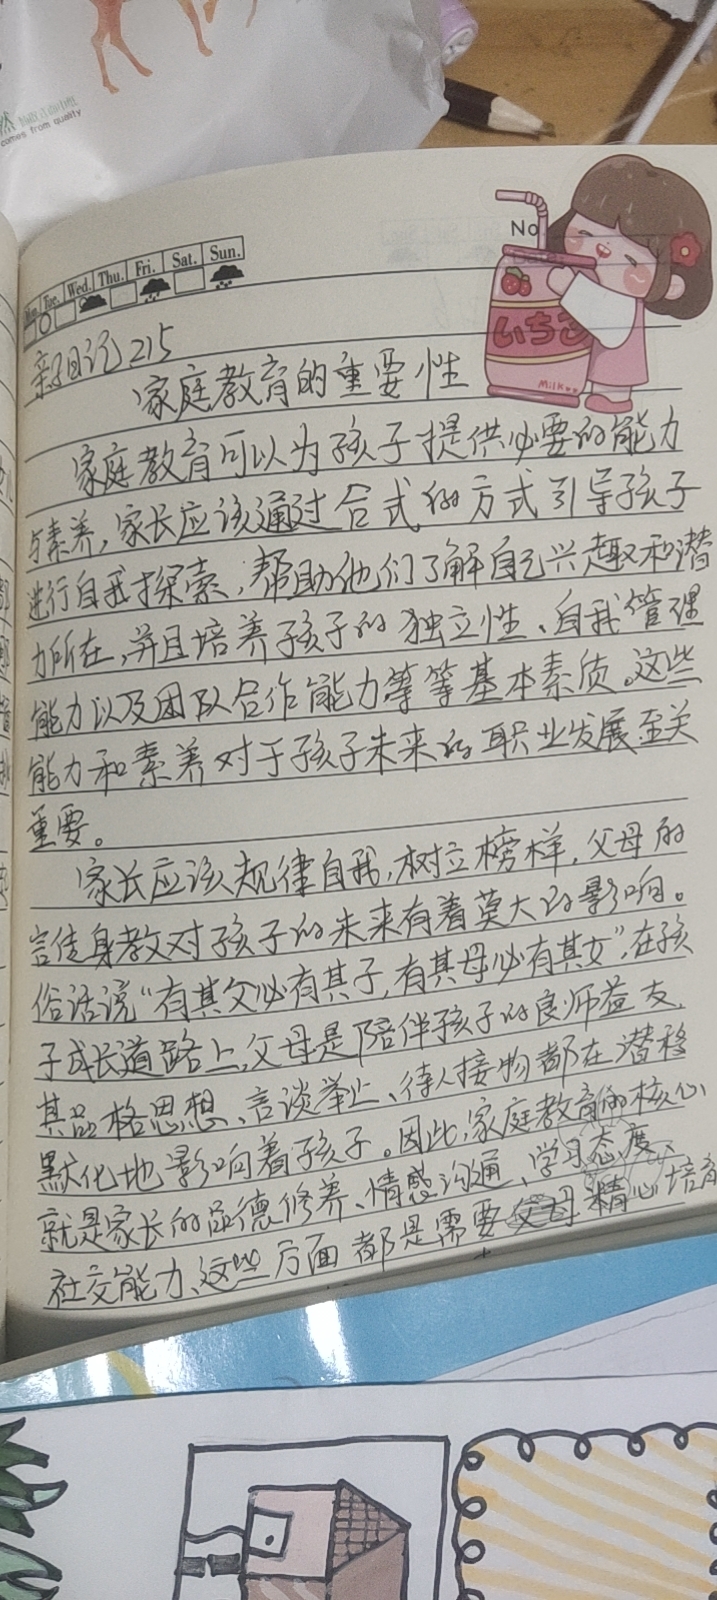 comes from quality
No
Mon. Tue. Wed. Thu. Fri. Sat. Sun.
いちご
Milk
亲子日记215
家庭教育的重要性
家庭教育可以为孩子提供必要的能力
与素养,家长应该通过合式的方式引导孩子
进行自我探索,帮助他们了解自己兴趣和潜
力所在,并且培养孩子的独立性、自我管理
能力以及团队合作能力等等基本素质。这些
能力和素养对于孩子未来的职业发展至关
重要。
家长应该规律自我,树立榜样,父母的
言传身教对孩子的未来有着莫大的影响。
俗话说“有其父必有其子,有其母必有其女”,在孩
子成长道路上,父母是陪伴孩子的良师益友,
其品格思想、言谈举止、待人接物都在潜移
默化地影响着孩子。因此,家庭教育的核心
就是家长的品德修养、情感沟通、学习态度、
社交能力、这些方面都是需要父母精心培育